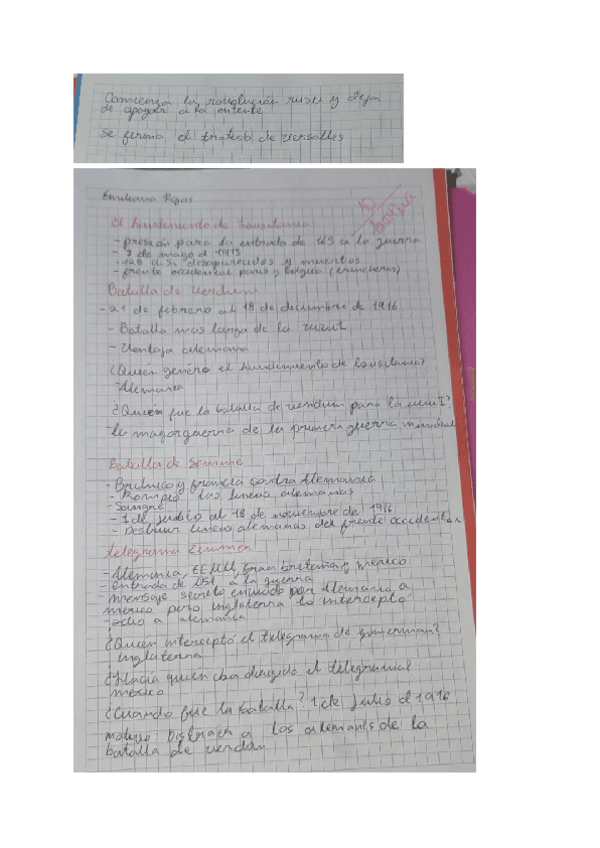 Comienza la revolución rusa y deja
de apoyar a la entente
Se firma el tratado de versalles
Emiliana Rojas
10
El hundimiento de Lousitania
- presión para la entrada de US a la guerra
- 7 de mayo d 1915
- 128 U.S. desaparecidos y muertos
- frente occidental paris y belgica (trincheras)
Batalla de verdun
- 21 de febrero al 18 de diciembre de 1916
- Batalla mas larga de la
- Ventaja alemana
¿Quien generó el hundimiento de lousitania?
- Alemania
¿Quien fue la batalla de verdun para la
- la mayor guerra de la primera guerra mundial
Batalla de Somme
- Britnico y francia contra Alemania
- Rompió las lineas alemanas
- Sangre
- 1 de julio al 18 de noviembre de 1916
- Destruir lineas alemanas del frente occidental
telegrama Zimmer
- Alemania, EEUU, Gran bretaña y mexico
- entrada de USA a la guerra
- mensaje secreto enviado por Alemania a
mexico pero inglaterra lo interceptó
- odio a alemania
¿Quien interceptó el telegrama de Zimerman?
inglaterra
¿Hacia quien iba dirigido el telegrama?
mexico
¿Cuando fue la batalla? 1 de julio d 1916
motivo: Distraer a los alemanes de la
batalla de verdun